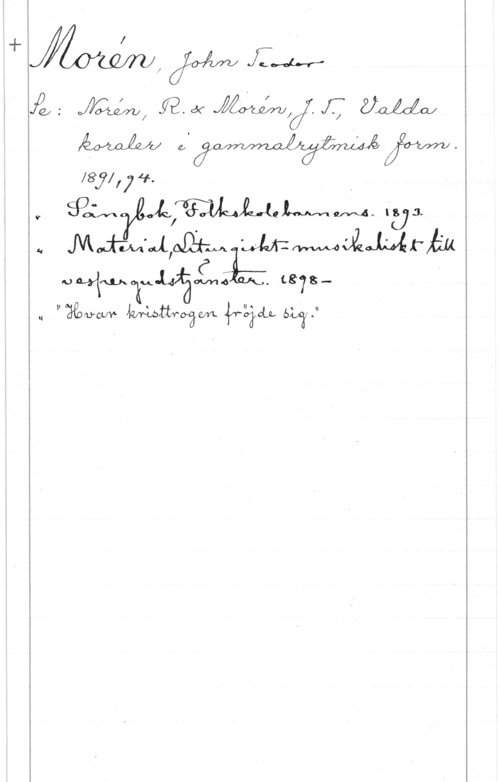 + Morén, John Teodor
Se: Norén, R. & Morén, J. T., Valda
koraler i gammalrytmisk form.
1891, 94.
" Sångbok, Folkskolebarnens. 1893.
" Material, Liturgiskt-musikaliskt till
vespergudstjänster. 1898-
" "Hvar kristtrogen fröjde sig."